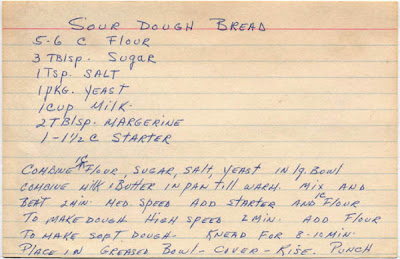 SOUR DOUGH BREAD
5-6 C FLOUR
3 TBlsp. Sugar
1 Tsp. SALT
1 pkg. YEAST
1 cup Milk
2 TBlsp. MARGERINE
1 - 1½ C STARTER
1C
COMBINE FLOUR, SUGAR, SALT, YEAST IN lg. Bowl
COMBINE MilK & BUTTER IN PAN Till WARM. MIX AND
1C
BEAT 2 MIN. MED. SPEED ADD STARTER AND FLOUR
TO MAKE DOUGH HIGH SPEED 2 MIN. ADD FLOUR
TO MAKE SOFT DOUGH- KNEAD FOR 8-10 MIN.
PLACE IN GREASED BOWL - COVER - RISE. PUNCH